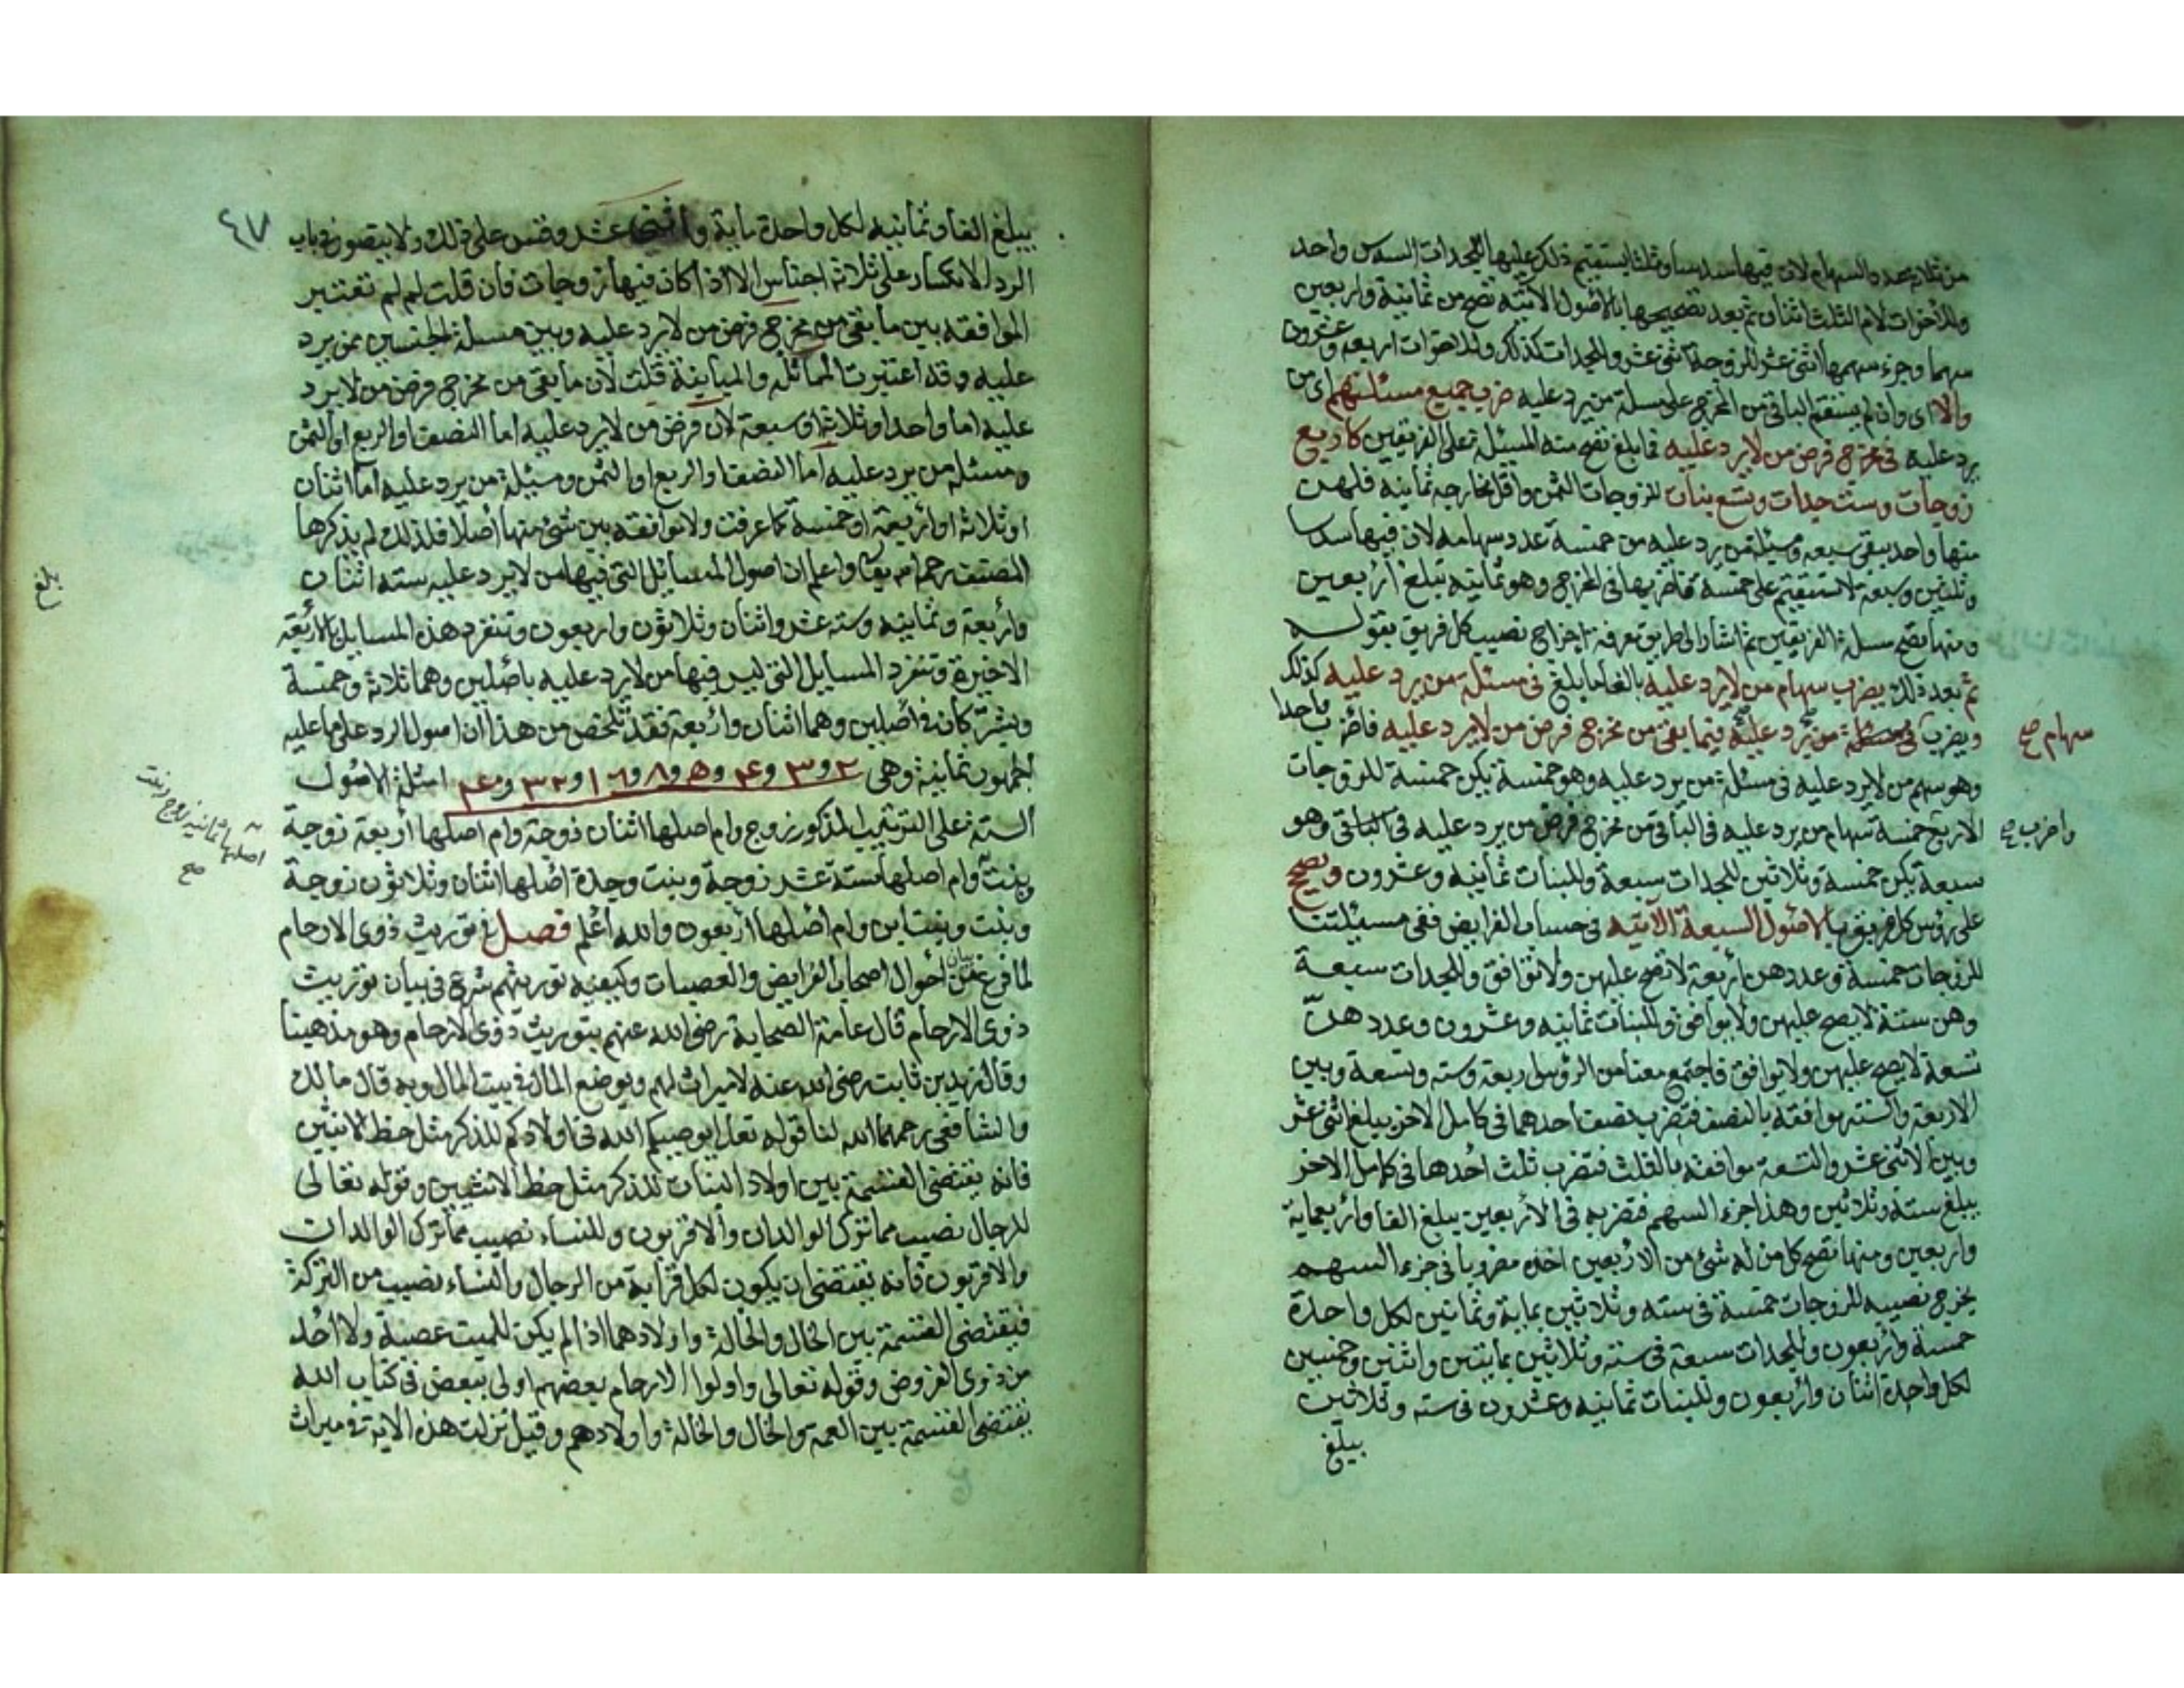 من ثلاثة عدد السهام لان فيها سدسا وثلثا يستقيم ذلك عليها للجدات السدس واحد
وللأخوات لام الثلث اثنان ثم بعد تصحيحها بالاصول الآتية تصح من ثمانية واربعين
سهما وجزء سهمها اثنى عشر للزوجة اثنى عشر وللجدات كذلك وللاخوات اربعة وعشرون
والا اى وان لم يستقم الباقى من المخرج على مسئلة من يرد عليه ضرب جميع مسئلتهم اى من
يرد عليه فى مخرج فرض من لا يرد عليه فما بلغ تصح منه المسئلة على الفريقين كاربع
زوجات وست جدات وتسع بنات للزوجات الثمن واقل مخارجه ثمانية فلهن
منها واحد يبقى سبعة ومسئلة من يرد عليه من خمسة عدد سهامه لان فيها سدسا
وثلثين وسبعة لا تستقيم على خمسة فاضربها فى المخرج وهو ثمانية تبلغ اربعين
ومنها تصح مسئلة الفريقين ثم اشار الى طريق معرفة اخراج نصيب كل فريق بقوله
ثم بعد ذلك يضرب سهام من لا يرد عليه بالغا ما بلغ فى مسئلة من يرد عليه كذلك
ويضرب فى مسئلة من يرد عليه فيما بقى من مخرج فرض من لا يرد عليه فاضرب واحدا
سهام صح
وهو سهم من لا يرد عليه فى مسئلة من يرد عليه وهو خمسة يكن خمسة للزوجات
الاربع خمسة سهام من يرد عليه فى الباقى من مخرج فرض من يرد عليه فى الباقى وهو
واضرب صح
سبعة يكن خمسة وثلاثين للجدات سبعة وللبنات ثمانية وعشرون ويصح
على رؤس كل فريق بالاصول السبعة الآتية فى حساب الفرايض ففى مسئلتنا
للزوجات خمسة وعددهن اربعة لا تصح عليهن ولا توافق وللجدات سبعة
وهن ستة لا يصح عليهن ولا يوافق وللبنات ثمانية وعشرون وعددهن
تسعة لا يصح عليهن ولا يوافق فاجتمع معنا من الرؤس اربعة وستة وتسعة وبين
الاربعة والستة موافقة بالنصف فتضرب نصف احدهما فى كامل الاخر يبلغ اثنى عشر
وبين الاثنى عشر والتسعة موافقة بالثلث فتضرب ثلث احدها فى كامل الاخر
يبلغ ستة وثلاثين وهذا جزء السهم فتضربه فى الاربعين يبلغ الفا واربعماية
واربعين ومنها تصح كل من له شئ من الاربعين اخذه مضروبا فى جزء السهم
يخرج نصيبه للزوجات خمسة فى ستة وثلاثين بماية وثمانين لكل واحدة
خمسة واربعون وللجدات سبعة فى ستة وثلاثين بمايتين واثنين وخمسين
لكل واحدة اثنان واربعون وللبنات ثمانية وعشرون فى ستة وثلاثين
يبلغ
٤٧
يبلغ الفا وثمانية لكل واحدة ماية واثنى عشر وقس على ذلك ولا يتصور فى باب
الرد الانكسار على ثلاثة اجناس الا اذا كان فيها زوجات فان قلت لم لم تعتبر
الموافقة بين ما بقى من مخرج فرض من لا يرد عليه وبين مسئلة الجنسين ممن يرد
عليه وقد اعتبرت المماثلة والمباينة قلت لان ما بقى من مخرج فرض من لا يرد
عليه اما واحد او ثلاثة او سبعة لان فرض من لا يرد عليه اما النصف او الربع او الثمن
ومسئلة من يرد عليه اما النصف او الربع او الثمن ومسئلة من يرد عليه اما اثنان
او ثلاثة او اربعة او خمسة كما عرفت ولا توافقه بين شئ منها اصلا فلذلك لم يذكرها
المصنف رحمه الله تعالى واعلم ان اصول المسايل التى فيها من لا يرد عليه ستة اثنان
واربعة وثمانية وستة عشر واثنان وثلاثون واربعون وتنفرد هذه المسايل بالاربعة
الاخيرة وتنفرد المسايل التى ليس فيها من لا يرد عليه باصلين وهما ثلاثة وخمسة
ويشتركان فى اصلين وهما اثنان واربعة فقد تلخص من هذا ان اصول الرد على ما عليه
الجمهور ثمانية وهى ٢ و ٣ و ۴ و ۵ و ٨ و ١٦ و ٣٢ و ۴۰ امثلة الاصول
الستة على الترتيب المذكور زوج وام اصلها اثنان زوجة وام اصلها اربعة زوجة
اصلها ثمانية زوج وبنت
صح
وبنت وام اصلها ستة عشر زوجة وبنت وجدة اصلها اثنان وثلاثون زوجة
وبنت وبنت ابن وام اصلها اربعون والله اعلم فصل فى توريث ذوى الارحام
لما فرغ من بيان احوال اصحاب الفرايض والعصبات وكيفية توريثهم شرع فى بيان توريث
ذوى الارحام قال عامة الصحابة رضى الله عنهم بتوريث ذوى الارحام وهو مذهبنا
وقال زيد بن ثابت رضى الله عنه لا ميراث لهم ويوضع المال فى بيت المال وبه قال مالك
والشافعى رحمهما الله لنا قوله تعالى يوصيكم الله فى اولادكم للذكر مثل حظ الانثيين
فانه يقتضى القسمة بين اولاد البنات للذكر مثل حظ الانثيين وقوله تعالى
للرجال نصيب مما ترك الوالدان والاقربون وللنساء نصيب مما ترك الوالدان
والاقربون فانه يقتضى ان يكون لكل قرابة من الرجال والنساء نصيب من التركة
فيقتضى القسمة بين الخال والخالة واولادهما اذا لم يكن للميت عصبة ولا احد
من ذوى الفروض وقوله تعالى واولوا الارحام بعضهم اولى ببعض فى كتاب الله
يقتضى القسمة بين العمة والخال والخالة واولادهم وقيل نزلت هذه الاية فى ميراث